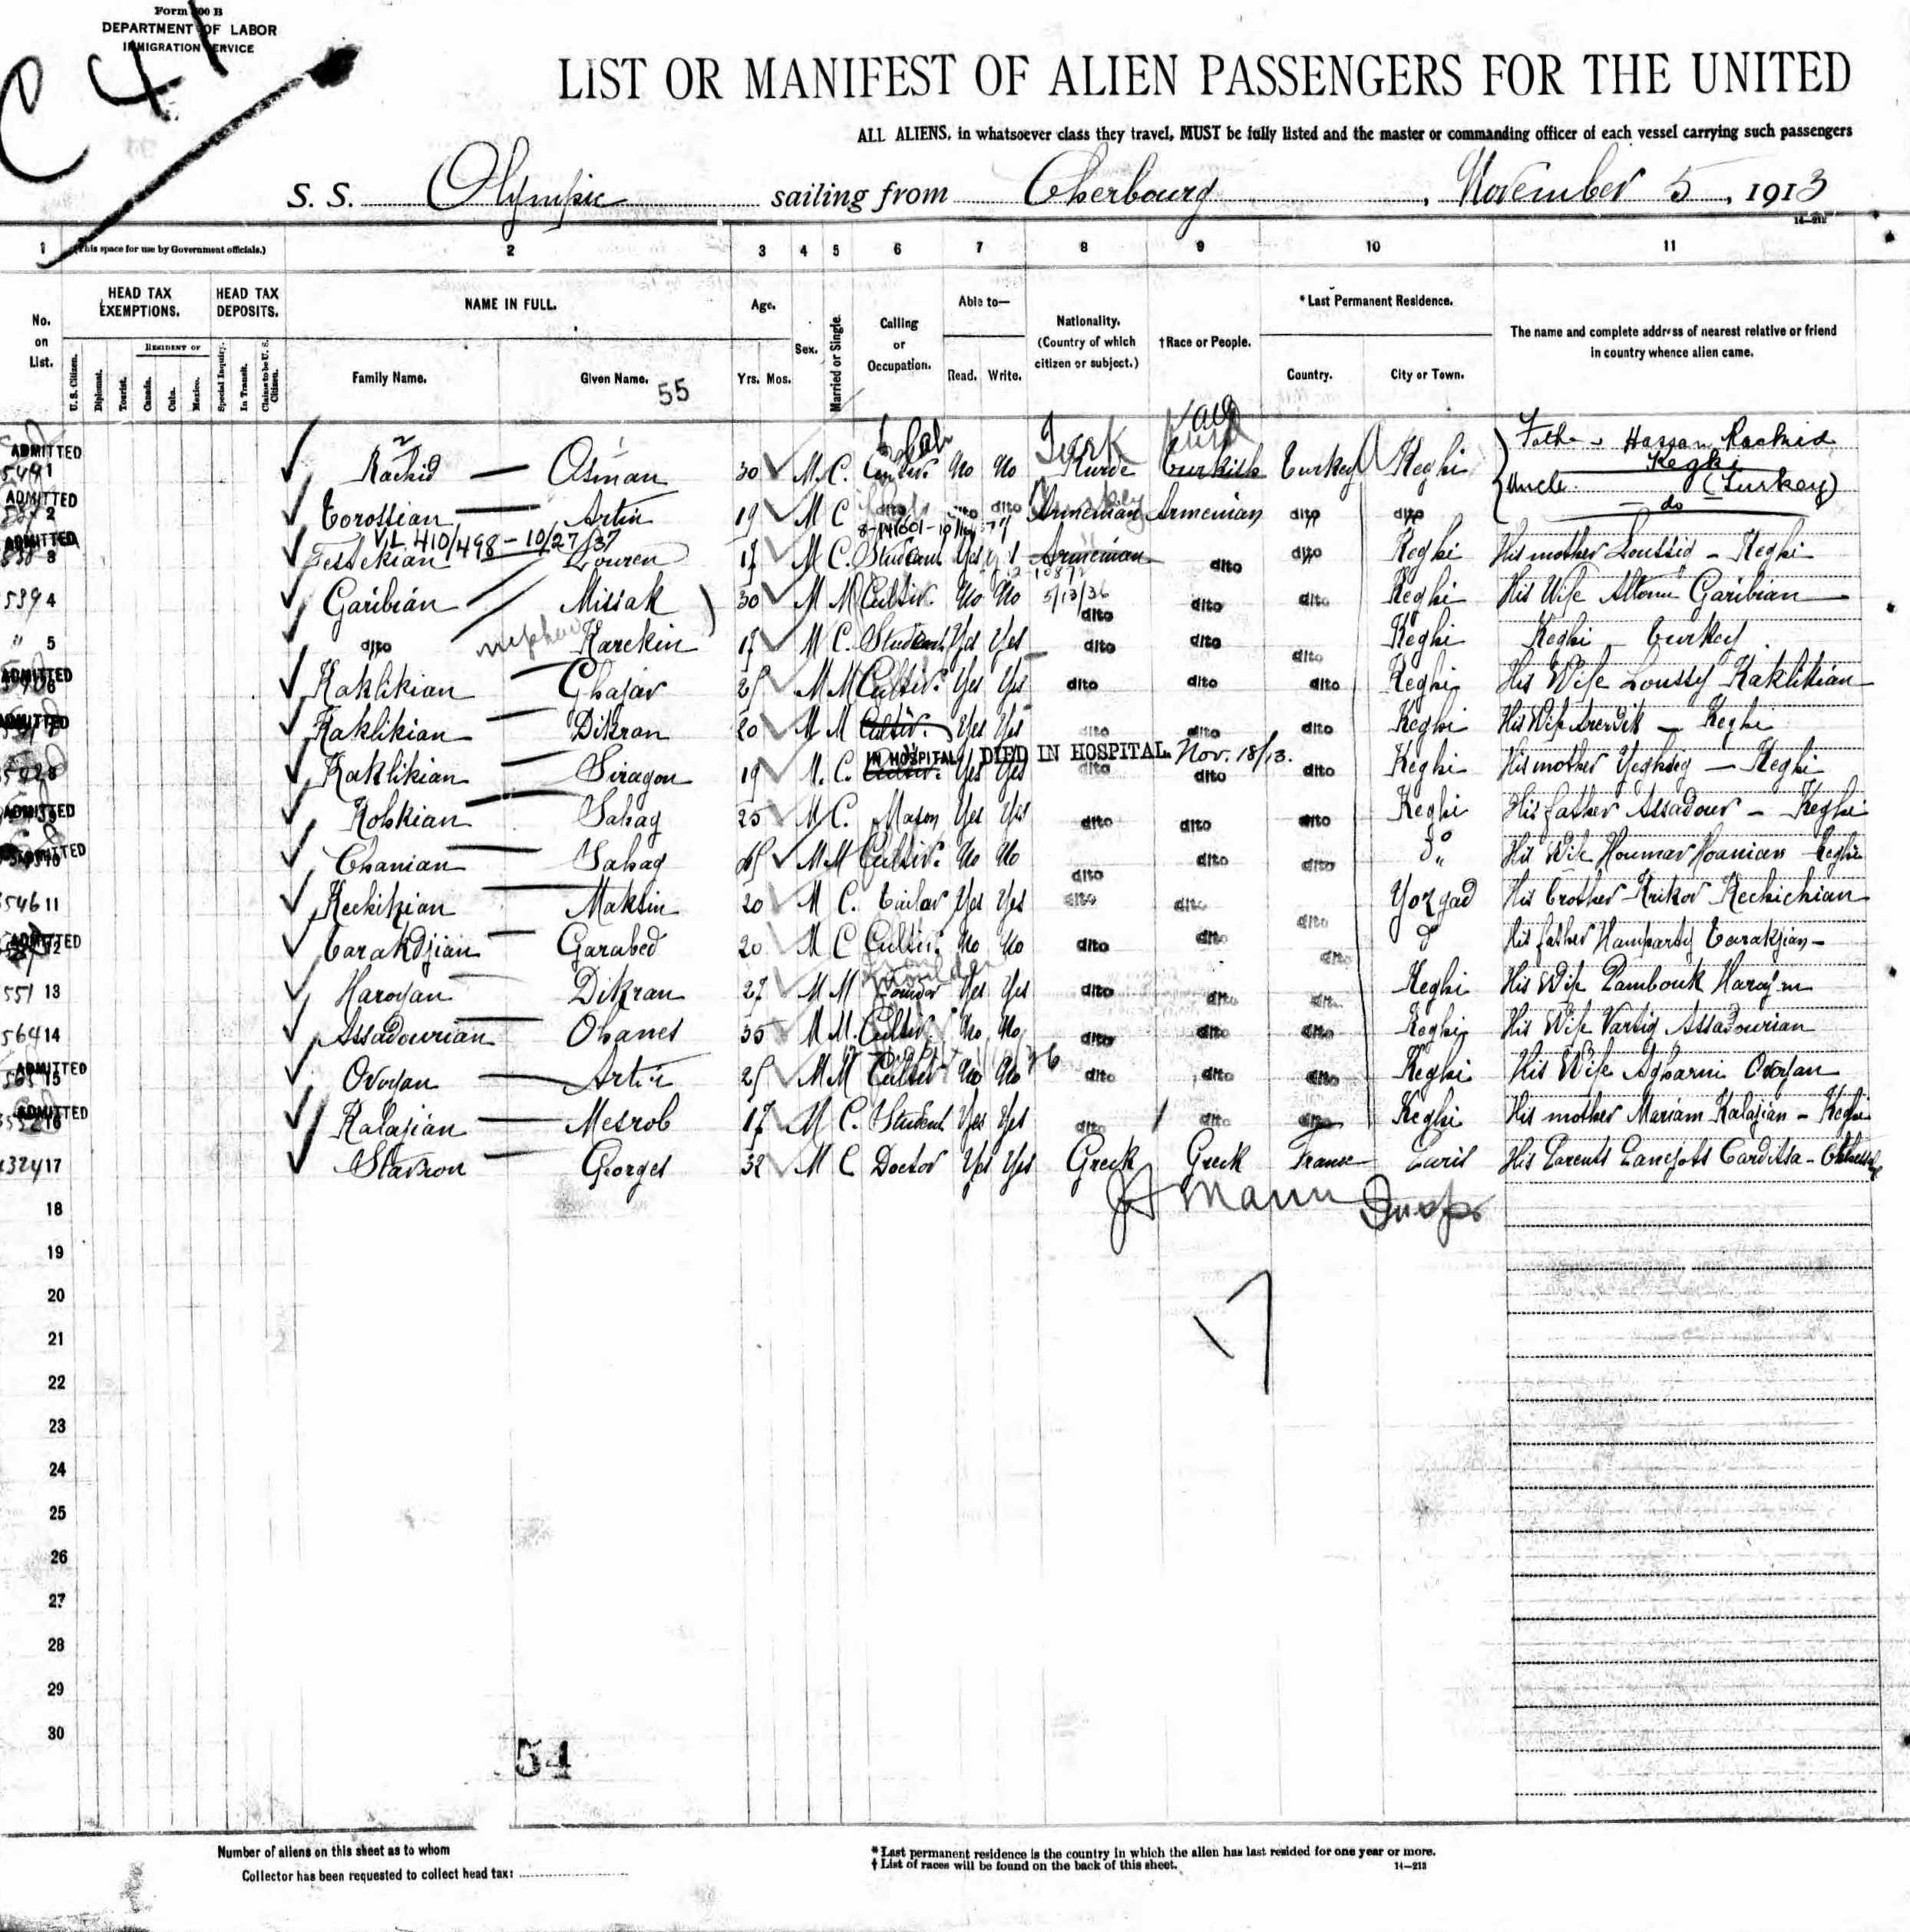 Form 500 B
DEPARTMENT OF LABOR
IMMIGRATION SERVICE
C 41
LIST OR MANIFEST OF ALIEN PASSENGERS FOR THE UNITED
ALL ALIENS, in whatsoever class they travel, MUST be fully listed and the master or commanding officer of each vessel carrying such passengers
S. S. Olympic sailing from Cherbourg, November 5, 1913
14—212
1 (This space for use by Government officials.) 2 3 4 5 6 7 8 9 10 11
No. on List. HEAD TAX EXEMPTIONS. HEAD TAX DEPOSITS. NAME IN FULL. Age. Sex. Married or Single. Calling or Occupation. Able to— Nationality. (Country of which citizen or subject.) †Race or People. *Last Permanent Residence. The name and complete address of nearest relative or friend in country whence alien came.
U. S. Citizen. Diplomat. Tourist. RESIDENT OF Canada. Cuba. Mexico. Special Inquiry. In Transit. Claims to be U. S. Citizen. Family Name. Given Name. 55 Yrs. Mos. Read. Write. Country. City or Town.
ADMITTED 1 Rachid — Osman 30 M. C. No No Turk Kurde Turkish Turkey Keghi Father Hassan Rachid Keghi (Turkey)
ADMITTED 2 Torossian — Artin 19 M C dito dito dito Armenian Armenian dito dito Uncle — do
VL 410/498 – 10/27/37
ADMITTED 3 Louren 17 M C. Student Yes Armenian dito dito Keghi His mother Loussig – Keghi
539 4 Garibian Missak 30 M M Cultiv. No No 5/13/36 dito dito dito Keghi His Wife Garibian
" 5 dito nephew Karekin 17 M C. Student Yes Yes dito dito dito Keghi Keghi – Turkey
ADMITTED 6 Kaklikian — Ghajar 25 M M Cultiv. Yes Yes dito dito dito Keghi His Wife Loussy Kaklikian
ADMITTED 7 Kaklikian — Dikran 20 M M Cultiv. Yes Yes dito dito dito Keghi His Wife — Keghi
IN HOSPITAL DIED IN HOSPITAL Nov. 18/13.
8 Kaklikian — Siragon 19 M. C. Cultiv. Yes Yes dito dito dito Keghi His mother Yeghsig — Keghi
ADMITTED 9 Kobkian — Sahag 25 M C. Mason Yes Yes dito dito dito Keghi His father Assadour – Keghi
ADMITTED 10 Chanian — Sahag 45 M M Cultiv. No No dito dito dito do His Wife Keghi
546 11 Kechikian — Maksin 20 M C. Tailor Yes Yes dito dito dito Yozgad His Brother Krikor Kechichian
ADMITTED 12 Tarakdjian — Garabed 20 M C Cultiv. No No dito dito dito do His father
551 13 Haroyan — Dikran 27 M M moulder Yes Yes dito dito dito Keghi His Wife Pambouk
564 14 Assadourian — Ohanes 35 M M. Cultiv. No No dito dito dito Keghi His Wife Vartig Assadourian
ADMITTED 15 Ovoyan — Artin 25 M M Cultiv No No dito dito dito Keghi His Wife Ovoyan
ADMITTED 16 Kalajian — Mesrob 17 M C. Student Yes Yes dito dito dito Keghi His mother Mariam Kalajian – Keghi
324 17 — Georges 32 M C Doctor Yes Yes Greek Greek France Paris His Parents
18 Mann Insp
19
20
21
22
23
24
25
26
27
28
29
30
17
54
Number of aliens on this sheet as to whom
Collector has been requested to collect head tax:
*Last permanent residence is the country in which the alien has last resided for one year or more.
†List of races will be found on the back of this sheet.
14—213